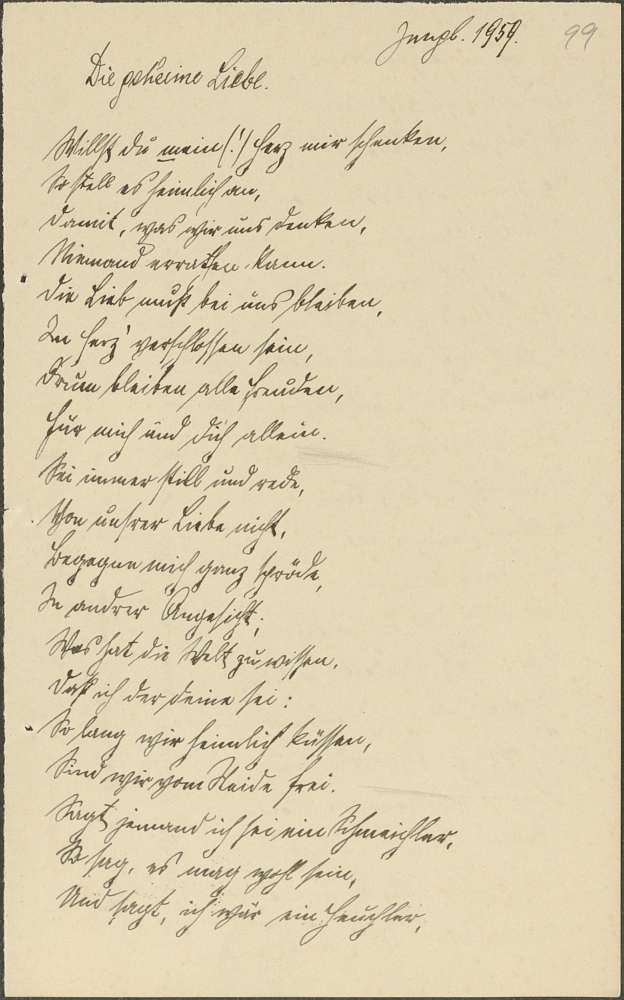 Jungb. 1959.
99
Die geheime Liebe.
Willst du mein (!) Herz mir schenken,
So stell es heimlich an,
Damit, was wir uns denken,
Niemand erraten kann.
Die Lieb muß bei uns bleiben,
In Herz' verschlossen sein,
Drum bleiben alle Freuden,
Für mich und dich allein.
Sei immer still und rede,
Von unsrer Liebe nicht,
Begegne mich ganz spröde,
In andrer Angesicht;
Was hat die Welt zu wissen,
Daß ich der deine sei:
So lang wir heimlich küssen,
Sind wir vom Neide frei.
Sagt jemand ich sei ein Schmeichler,
So sag, es mag wohl sein,
Und sagt, ich wär ein Heuchler,